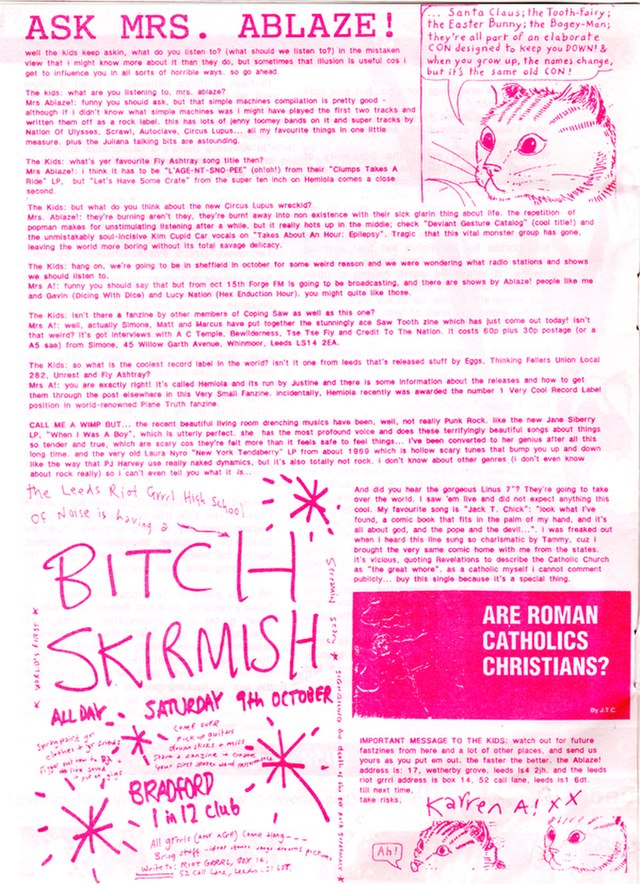 ASK MRS. ABLAZE!
well the kids keep askin, what do you listen to? (what should we listen to?) in the mistaken
view that i might know more about it than they do, but sometimes that illusion is useful cos i
get to influence you in all sorts of horrible ways. so go ahead.
The kids: what are you listening to, mrs. ablaze?
Mrs Ablaze!: funny you should ask, but that simple machines compilation is pretty good -
although if i didn't know what simple machines was i might have played the first two tracks and
written them off as a rock label. this has lots of jenny toomey bands on it and super tracks by
Nation Of Ulysses, Scrawl, Autoclave, Circus Lupus... all my favourite things in one little
measure. plus the Juliana talking bits are astounding.
The Kids: what's yer favourite Fly Ashtray song title then?
Mrs Ablaze!: i think it has to be "L'AGE-NT-SNO-PEE" (ohloh!) from their "Clumps Takes A
Ride" LP, but "Let's Have Some Crate" from the super ten inch on Hemiola comes a close
second.
... Santa Claus; the Tooth-fairy;
the Easter Bunny; the Bogey-Man;
they're all part of an elaborate
CON designed to keep you DOWN! &
when you grow up, the names change,
but it's the same old CON!
The Kids: but what do you think about the new Circus Lupus wreckid?
Mrs. Ablaze!: they're burning aren't they, they're burnt away into non existence with their sick glarin thing about life. the repetition of
popman makes for unstimulating listening after a while, but it really hots up in the middle; check "Deviant Gesture Catalog" (cool title!) and
the unmistakably soul-incisive Kim Cupid Car vocals on "Takes About An Hour: Epilepsy". Tragic that this vital monster group has gone,
leaving the world more boring without its total savage delicacy.
The Kids: hang on, we're going to be in sheffield in october for some weird reason and we were wondering what radio stations and shows
we should listen to.
Mrs A!: funny you should say that but from oct 15th Forge FM is going to be broadcasting, and there are shows by Ablaze! people like me
and Gavin (Dicing With Dice) and Lucy Nation (Hex Enduction Hour). you might quite like those.
The Kids: Isn't there a fanzine by other members of Coping Saw as well as this one?
Mrs A!: well, actually Simone, Matt and Marcus have put together the stunningly ace Saw Tooth zine which has just come out today! isn't
that weird? It's got interviews with A C Temple, Bewilderness, Tse Tse Fly and Credit To The Nation. it costs 60p plus 30p postage (or a
A5 sae) from Simone, 45 Willow Garth Avenue, Whinmoor, Leeds LS14 2EA.
The Kids: so what is the coolest record label in the world? isn't it one from leeds that's released stuff by Eggs, Thinking Fellers Union Local
282, Unrest and Fly Ashtray?
Mrs A!: you are exactly right! it's called Hemiola and its run by Justine and there is some information about the releases and how to get
them through the post elsewhere in this Very Small Fanzine. incidentally, Hemiola recently was awarded the number 1 Very Cool Record Label
position in world-renowned Plane Truth fanzine.
CALL ME A WIMP BUT... the recent beautiful living room drenching musics have been, well, not really Punk Rock. like the new Jane Siberry
LP, "When I Was A Boy", which is utterly perfect. she has the most profound voice and does these terrifyingly beautiful songs about things
so tender and true, which are scary cos they're felt more than it feels safe to feel things... i've been converted to her genius after all this
long time. and the very old Laura Nyro "New York Tendaberry" LP from about 1969 which is hollow scary tunes that bump you up and down
like the way that PJ Harvey use really naked dynamics, but it's also totally not rock. i don't know about other genres (i don't even know
about rock really) so i can't even tell you what it is...
the Leeds Riot Grrrl High School
Of Noise is having a
BITCH
SKIRMISH
* WORLD'S FIRST *
ALL DAY.. SATURDAY 9th OCTOBER
come over
pick up guitars
drum sticks + mics
BRADFORD
1 in 12 Club
All grrrls (any AGE) come along ---
Write to: RIOT GRRRL, BOX 14,
52 call lane, Leeds LS1 6DT.
And did you hear the gorgeous Linus 7"? They're going to
take over the world. I saw 'em live and did not expect anything this
cool. My favourite song is "Jack T. Chick": "look what i've
found, a comic book that fits in the palm of my hand, and it's
all about god, and the pope and the devil...". i was freaked out
when i heard this line sung so charismatic by Tammy, cuz i
brought the very same comic home with me from the states.
it's vicious, quoting Revelations to describe the Catholic Church
as "the great whore". as a catholic myself i cannot comment
publicly... buy this single because it's a special thing.
ARE ROMAN
CATHOLICS
CHRISTIANS?
By J.T.C.
IMPORTANT MESSAGE TO THE KIDS: watch out for future
fastzines from here and a lot of other places, and send us
yours as you put em out. the faster the better. the Ablaze!
address is: 17, wetherby grove, leeds ls4 2jh, and the leeds
riot grrrl address is box 14, 52 call lane, leeds ls1 6dt.
till next time.
take risks,
Karren A! XX
Ah!